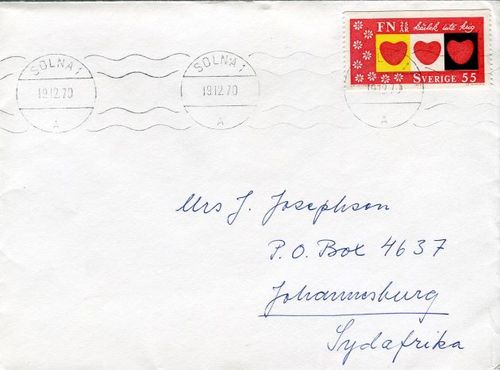 FN 25 ÅR kärlek inte krig
SVERIGE 55
SOLNA 1
19.12.70
A
SOLNA 1
19.12.70
A
19.12.7
A
Mrs J. Josephson
P.O. Box 4637
Johannesburg
Sydafrika